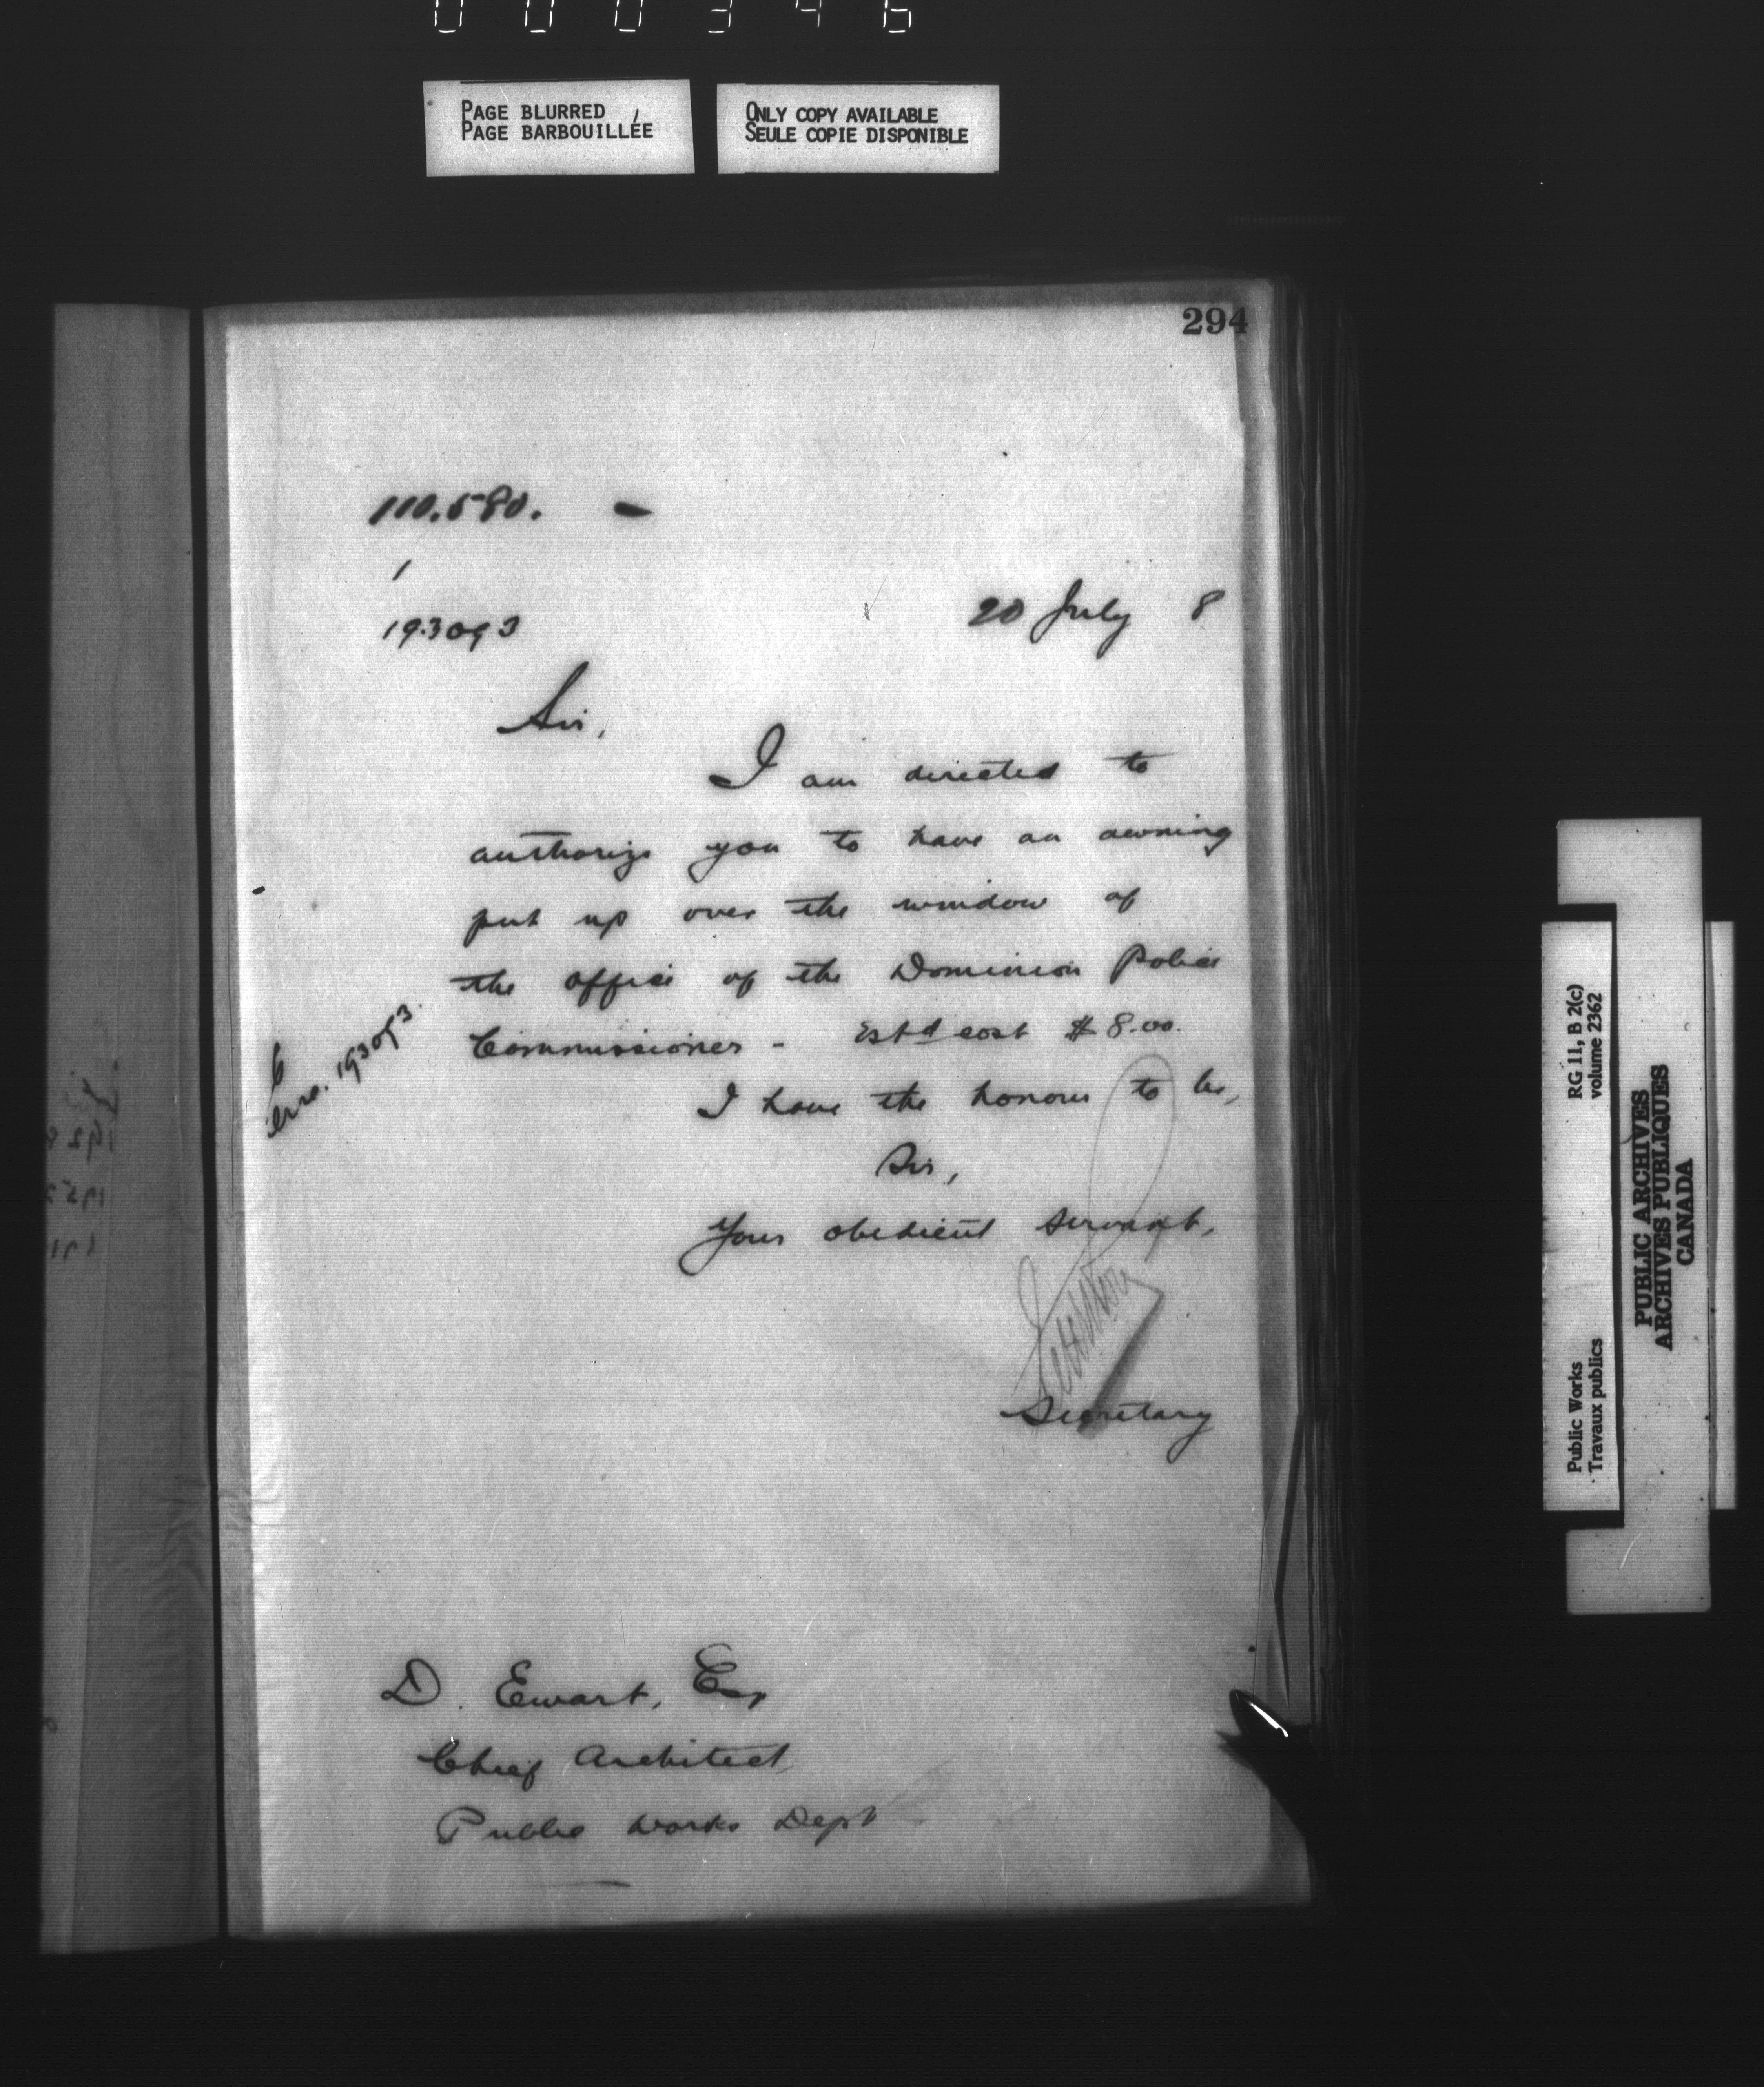 000346
PAGE BLURRED
PAGE BARBOUILLÉE
ONLY COPY AVAILABLE
SEULE COPIE DISPONIBLE
294
110.580. -
1
193093
20 July 8
Sir,
I am directed to
authorize you to have an awning
put up over the window of
the office of the Dominion Police
Commissioner - Est'd cost $8.00.
I have the honour to be,
Sir,
Your obedient servant,
Secretary
193093.
D. Ewart, Esq
Chief Architect,
Public Works Dept
RG 11, B 2(c)
volume 2362
Public Works
Travaux publics
PUBLIC ARCHIVES
ARCHIVES PUBLIQUES
CANADA